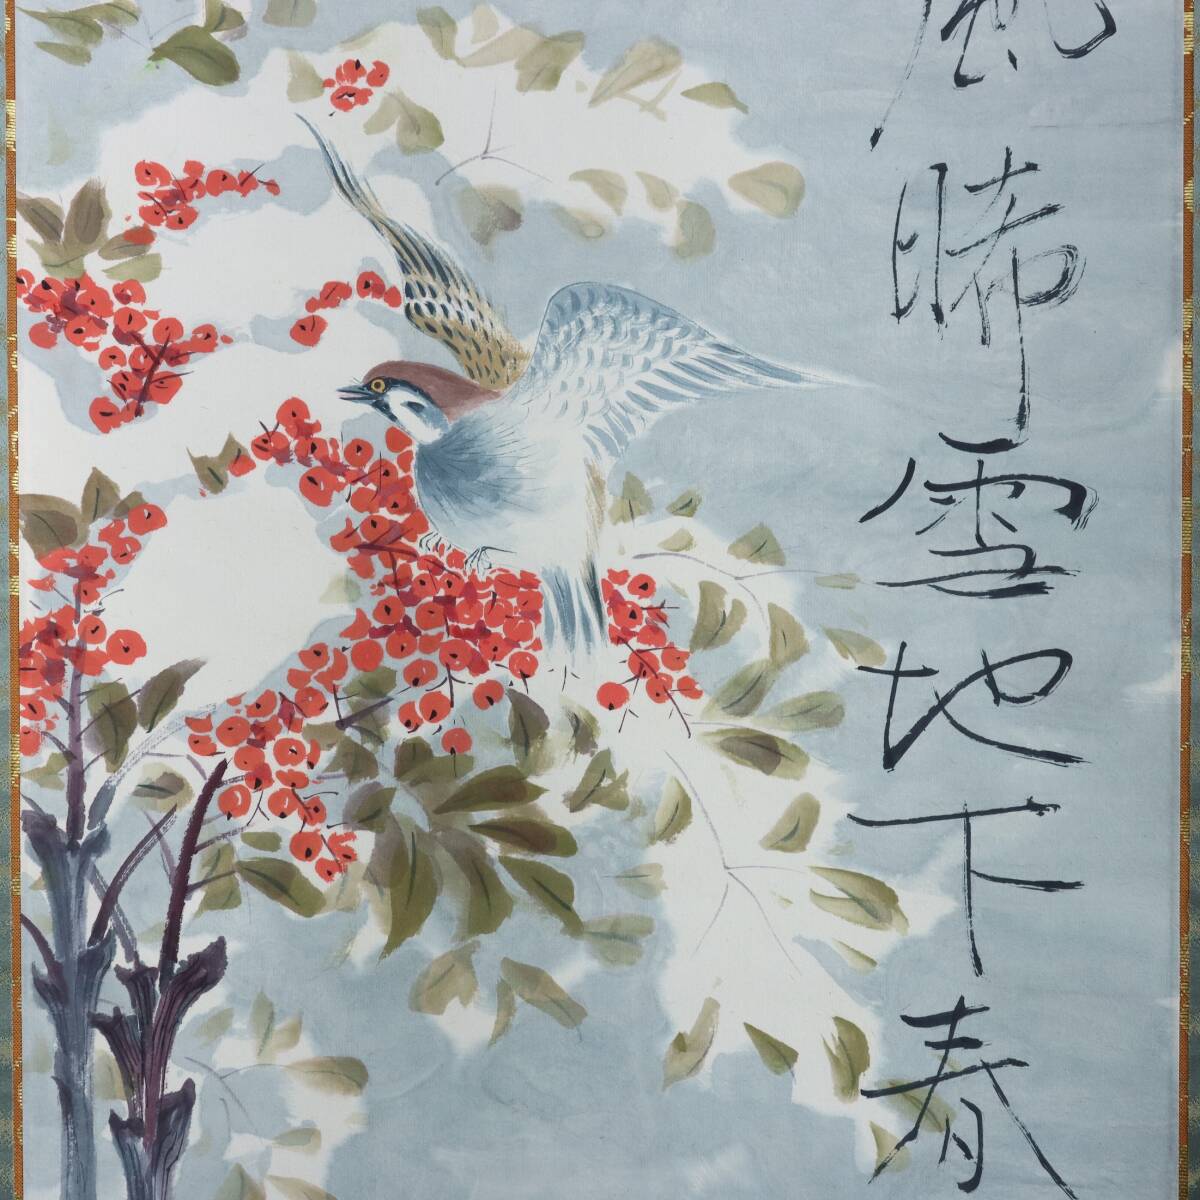 風晞雪地下春